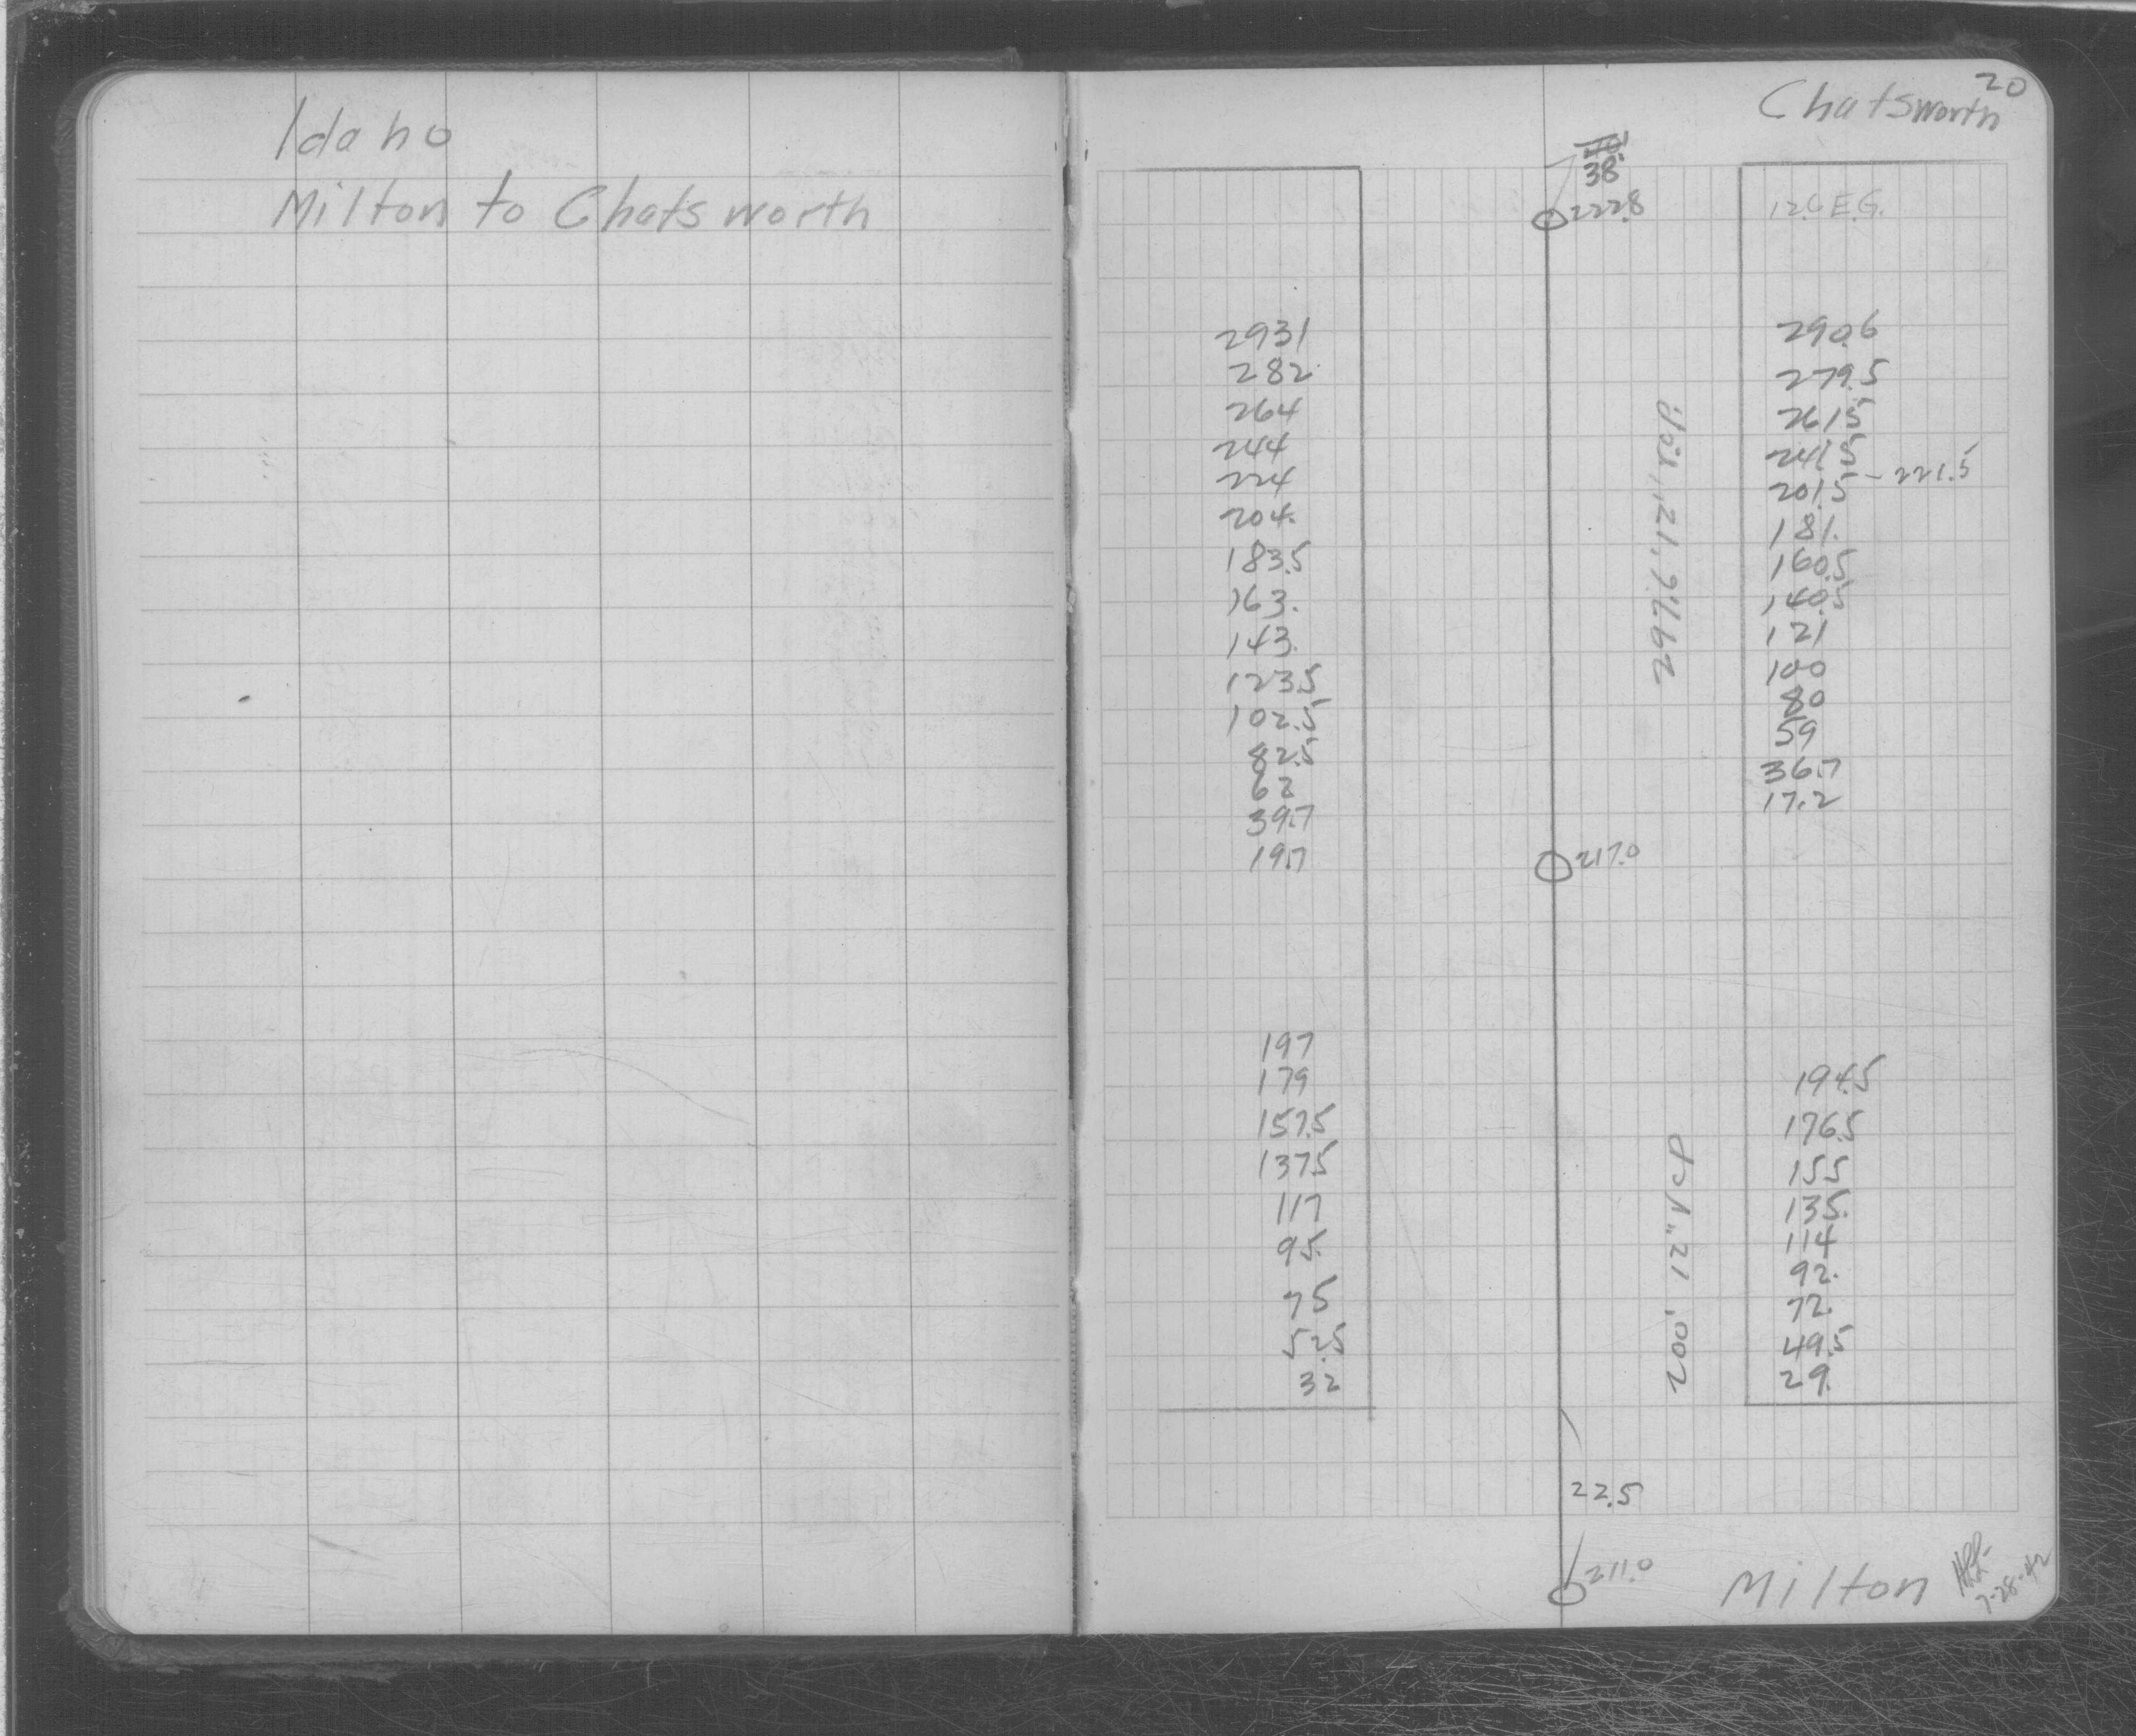 Idaho
Milton to Chatsworth
20
Chatsworth
38'
222.8
12.6 E.G.
293.1
282.
264
244
224
204.
183.5
163.
143.
123.5
102.5
82.5
62
39.7
19.7
290.6
279.5
261.5
241.5
201.5 - 221.5
181.
160.5
140.5
121
100
80
59
36.7
17.2
217.0
197
179
157.5
137.5
117
95.
75
52.5
32
194.5
176.5
155
135.
114
92.
72.
49.5
29.
200', 12" V.C.P.
22.5
211.0
Milton
7-28-42